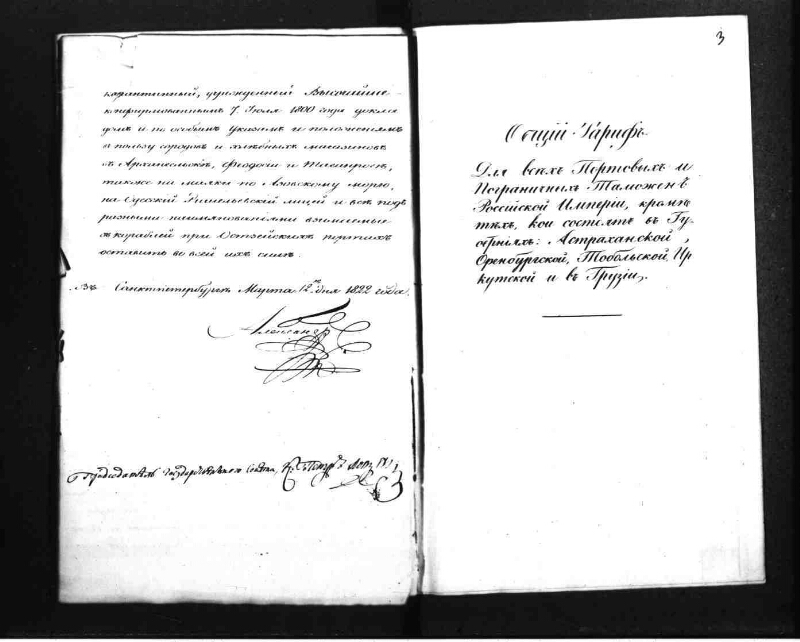 карантинный, учрежденной Высочайше
конфирмованнымъ 7. Іюля 1800 года докла
домъ и по особымъ указамъ и положеніямъ
в пользу городовъ и хлѣбныхъ магазиновъ
въ Архангельскѣ, Феодосіи и Таганрогѣ,
также на маяки по Азовскому морю,
на Одесской Ришельевскій лицей и всѣ подъ
разными наименованіями взимаемые
съ кораблей при Остзейскихъ портахъ
оставить во всей ихъ силѣ.
Въ Санктпетербургѣ Марта 12го дня 1822 года.
Александр
Председатель Государственнаго Совета, К:
3
Общій Тарифъ
Для всѣхъ Портовыхъ и
Пограничныхъ Таможенъ
Россійской Имперіи, кромѣ
тѣхъ, кои состоятъ въ Гу
берніяхъ: Астраханской,
Оренбургской, Тобольской, Ир
кутской и въ Грузіи.